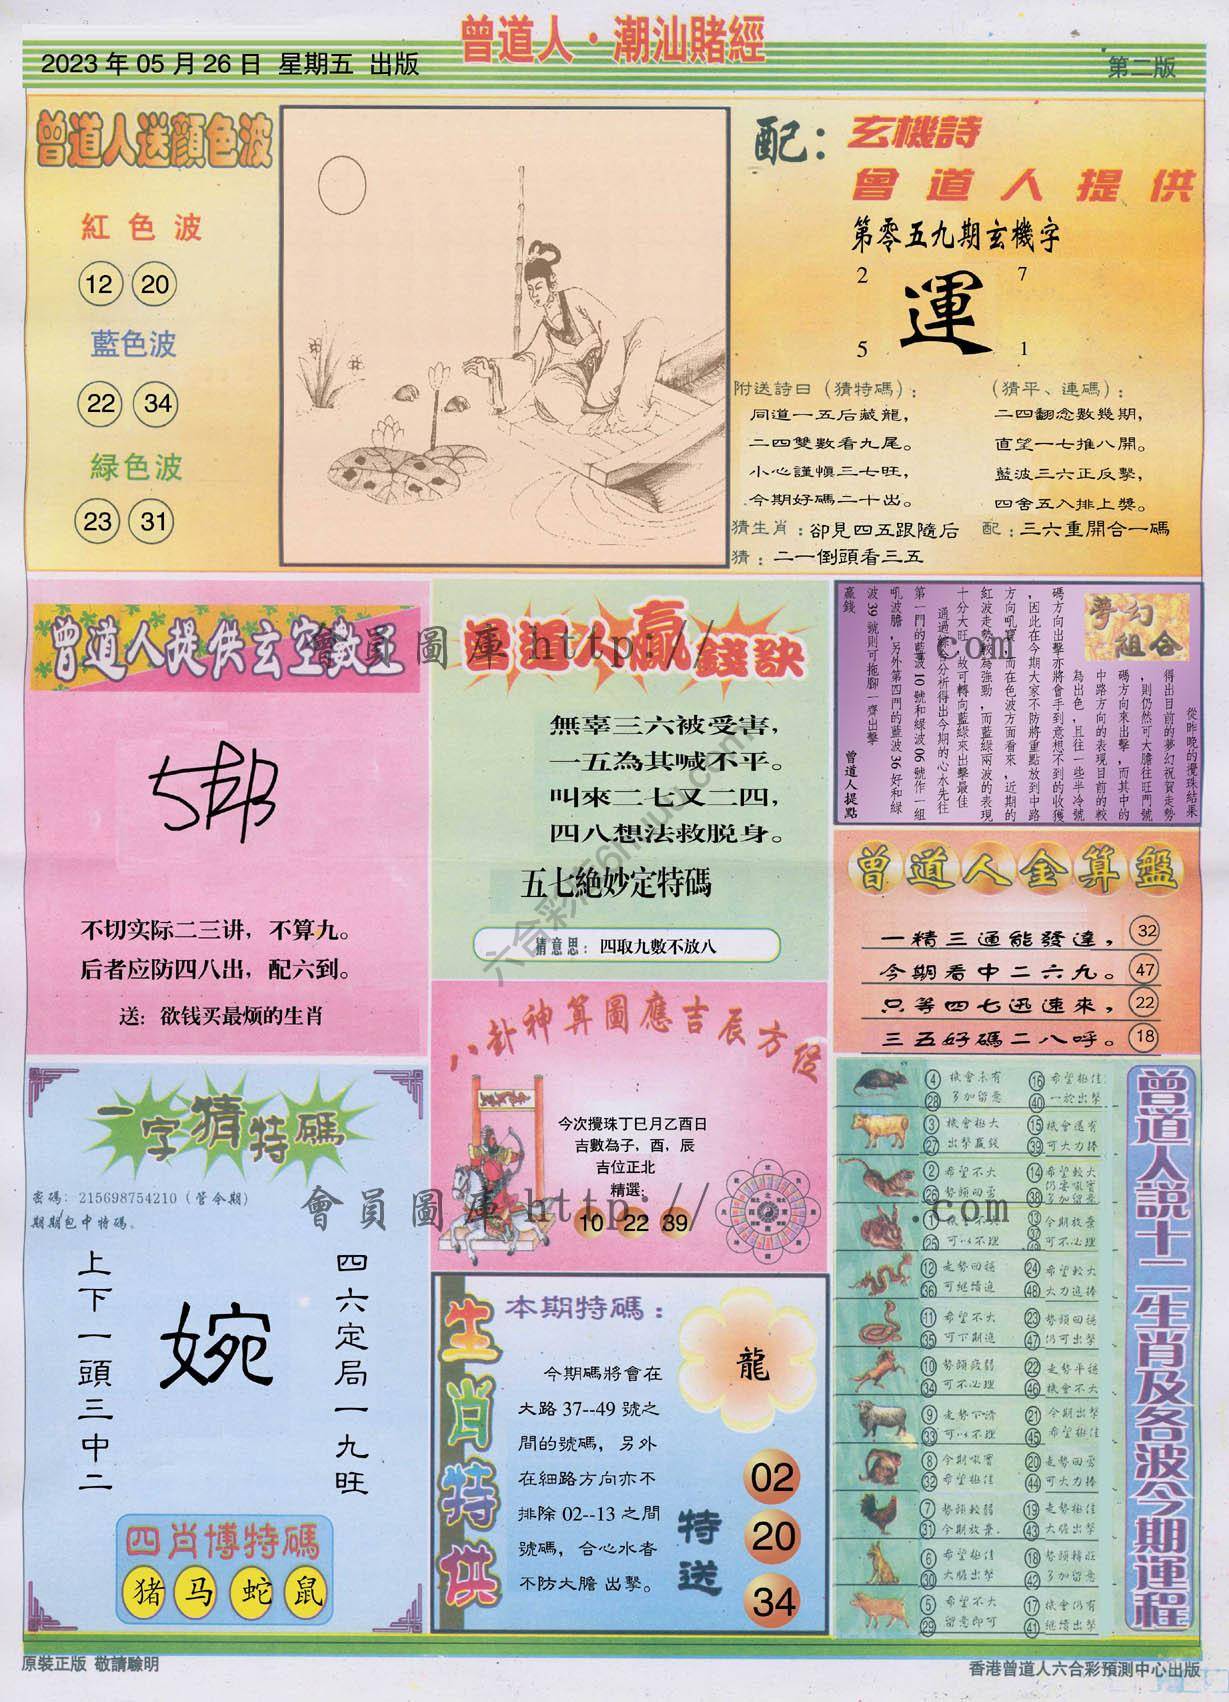 曾道人·潮汕賭經
2023年05月26日 星期五 出版
第二版
曾道人送顏色波
紅色波
12 20
藍色波
22 34
緑色波
23 31
配：
玄機詩
曾道人提供
第零五九期玄機字
2 7
運
5 1
附送詩曰（猜特碼）：
同道一五后藏龍，
二四雙數看九尾。
小心謹慎三七旺，
今期好碼二十出。
（猜平、連碼）：
二四翻念數幾期，
直望一七推八開。
藍波三六正反擊，
四舍五入排上獎。
猜生肖：卻見四五跟隨后
配：三六重開合一碼
猜：二一倒頭看三五
曾道人提供玄空數王
不切实际二三讲，不算九。
后者应防四八出，配六到。
送：欲钱买最烦的生肖
曾道人贏錢訣
無辜三六被受害，
一五為其喊不平。
叫來二七又二四，
四八想法救脱身。
五七絶妙定特碼
猜意思：四取九數不放八
夢幻組合
從昨晚的攪珠結果
得出目前的夢幻祝賀走勢
，則仍然可大膽往旺門號
碼方向來出擊，而其中的
中路方向的表現目前的較
為出色，且往一些半冷號
碼方向出擊亦將會手到意想不到的收獲
，因此在今期大家不防將重點放到中路
方向吼寶，而在色波方面看來，近期的
紅波走勢較為強勁，而藍綠兩波的表現
十分大旺，故可轉向藍綠來出擊最佳
通過綜合分析得出今期的心水先往
第一門的藍波10號和緑波06號作一組
吼波膽，另外第四門的藍波36好和緑
波39號則可拖腳一齊出擊
贏錢
曾道人提點
曾道人金算盤
一精三通能發達，32
今期看中二六九。47
只等四七迅速來，22
三五好碼二八呼。18
八卦神算圖應吉辰方位
今次攪珠丁巳月乙酉日
吉數為子，酉，辰
吉位正北
精選：
10 22 39
一字猜特碼
密碼：215698754210（管今期）
期期包中特碼。
上下一頭三中二
婉
四六定局一九旺
四肖博特碼
猪 马 蛇 鼠
生肖特供
本期特碼：
龍
今期碼將會在
大路37--49號之
間的號碼，另外
在細路方向亦不
排除02--13之間
號碼，合心水者
不防大膽 出擊。
特送
02
20
34
曾道人説十二生肖及各波今期運程
4 28 機會未有 多加留意
16 40 希望極佳 一於出擊
3 27 機會極大 出擊贏錢
15 39 機會還有 可大力捧
2 26 希望不大 勢頭回落
14 38 希望較大 仍要吼實 多加留意
1 25 機會不大 可以不理
13 37 49 今期放棄 可不必理
12 36 走勢回穩 可繼續進
24 48 希望較大 大力追捧
11 35 希望不大 可下期追
23 47 勢頭回穩 仍可出擊
10 34 勢頭疲弱 可不必理
22 46 走勢平穩 機會不大
9 33 走勢下滑 可以不理
21 45 今期出擊 希望極佳
8 32 今期吼實 希望極佳
20 44 走勢回勇 可大力捧
7 31 勢頭較弱 今期放棄。
19 43 走勢極佳 大膽出擊
6 30 希望極佳 大膽出擊
18 42 勢頭轉旺 多加留意
5 29 希望不大 留意即可
17 41 機會仍有 繼續出擊
會員圖庫 http:// .com
會員圖庫 http:// .com
原裝正版 敬請驗明
香港曾道人六合彩預測中心出版